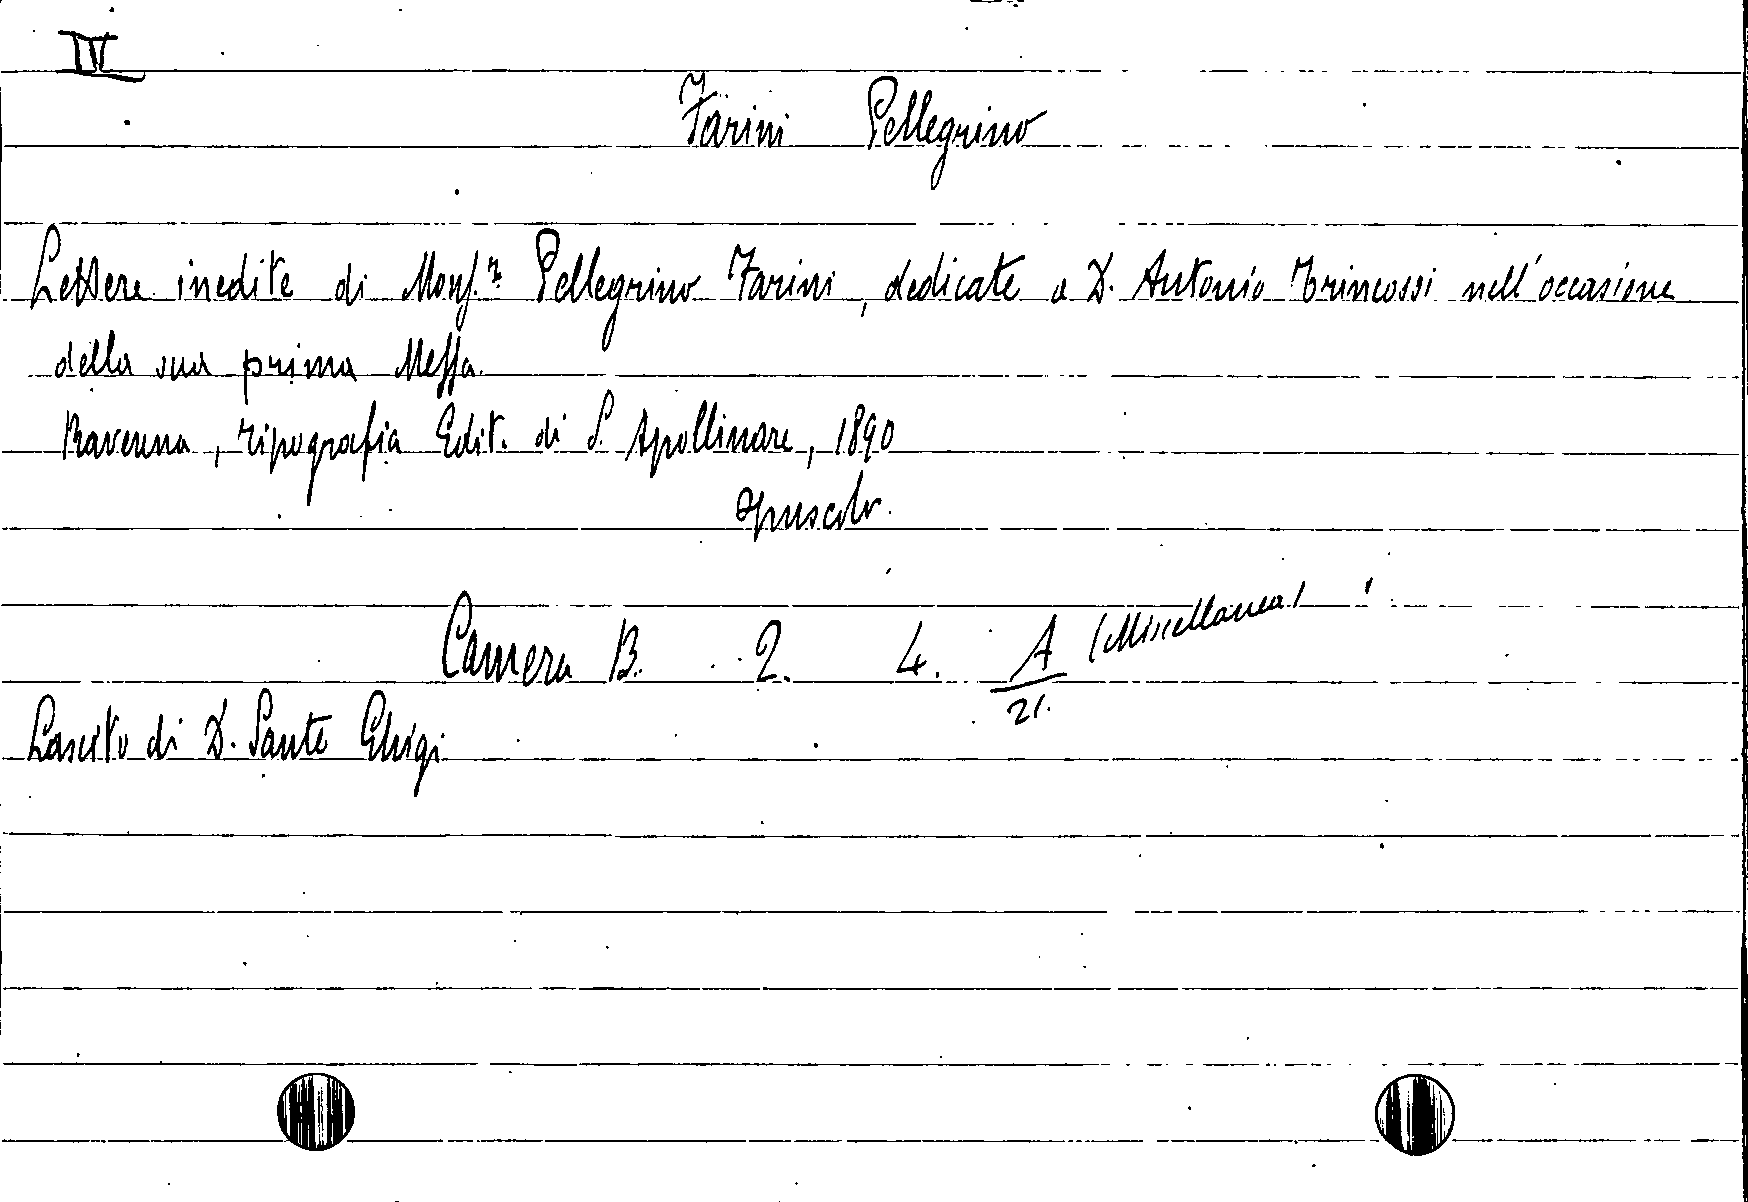 IV
Farini Pellegrino
Lettere inedite di Monsʳ Pellegrino Farini, dedicate a D. Antonio Trincossi nell'occasione
della sua prima Messa.
Ravenna, Tipografia Edit. di S. Apollinare, 1890
opuscolo.
Camera B. 2. 4. A (Miscellanea)
21.
Lascito di D. Sante Ghigi